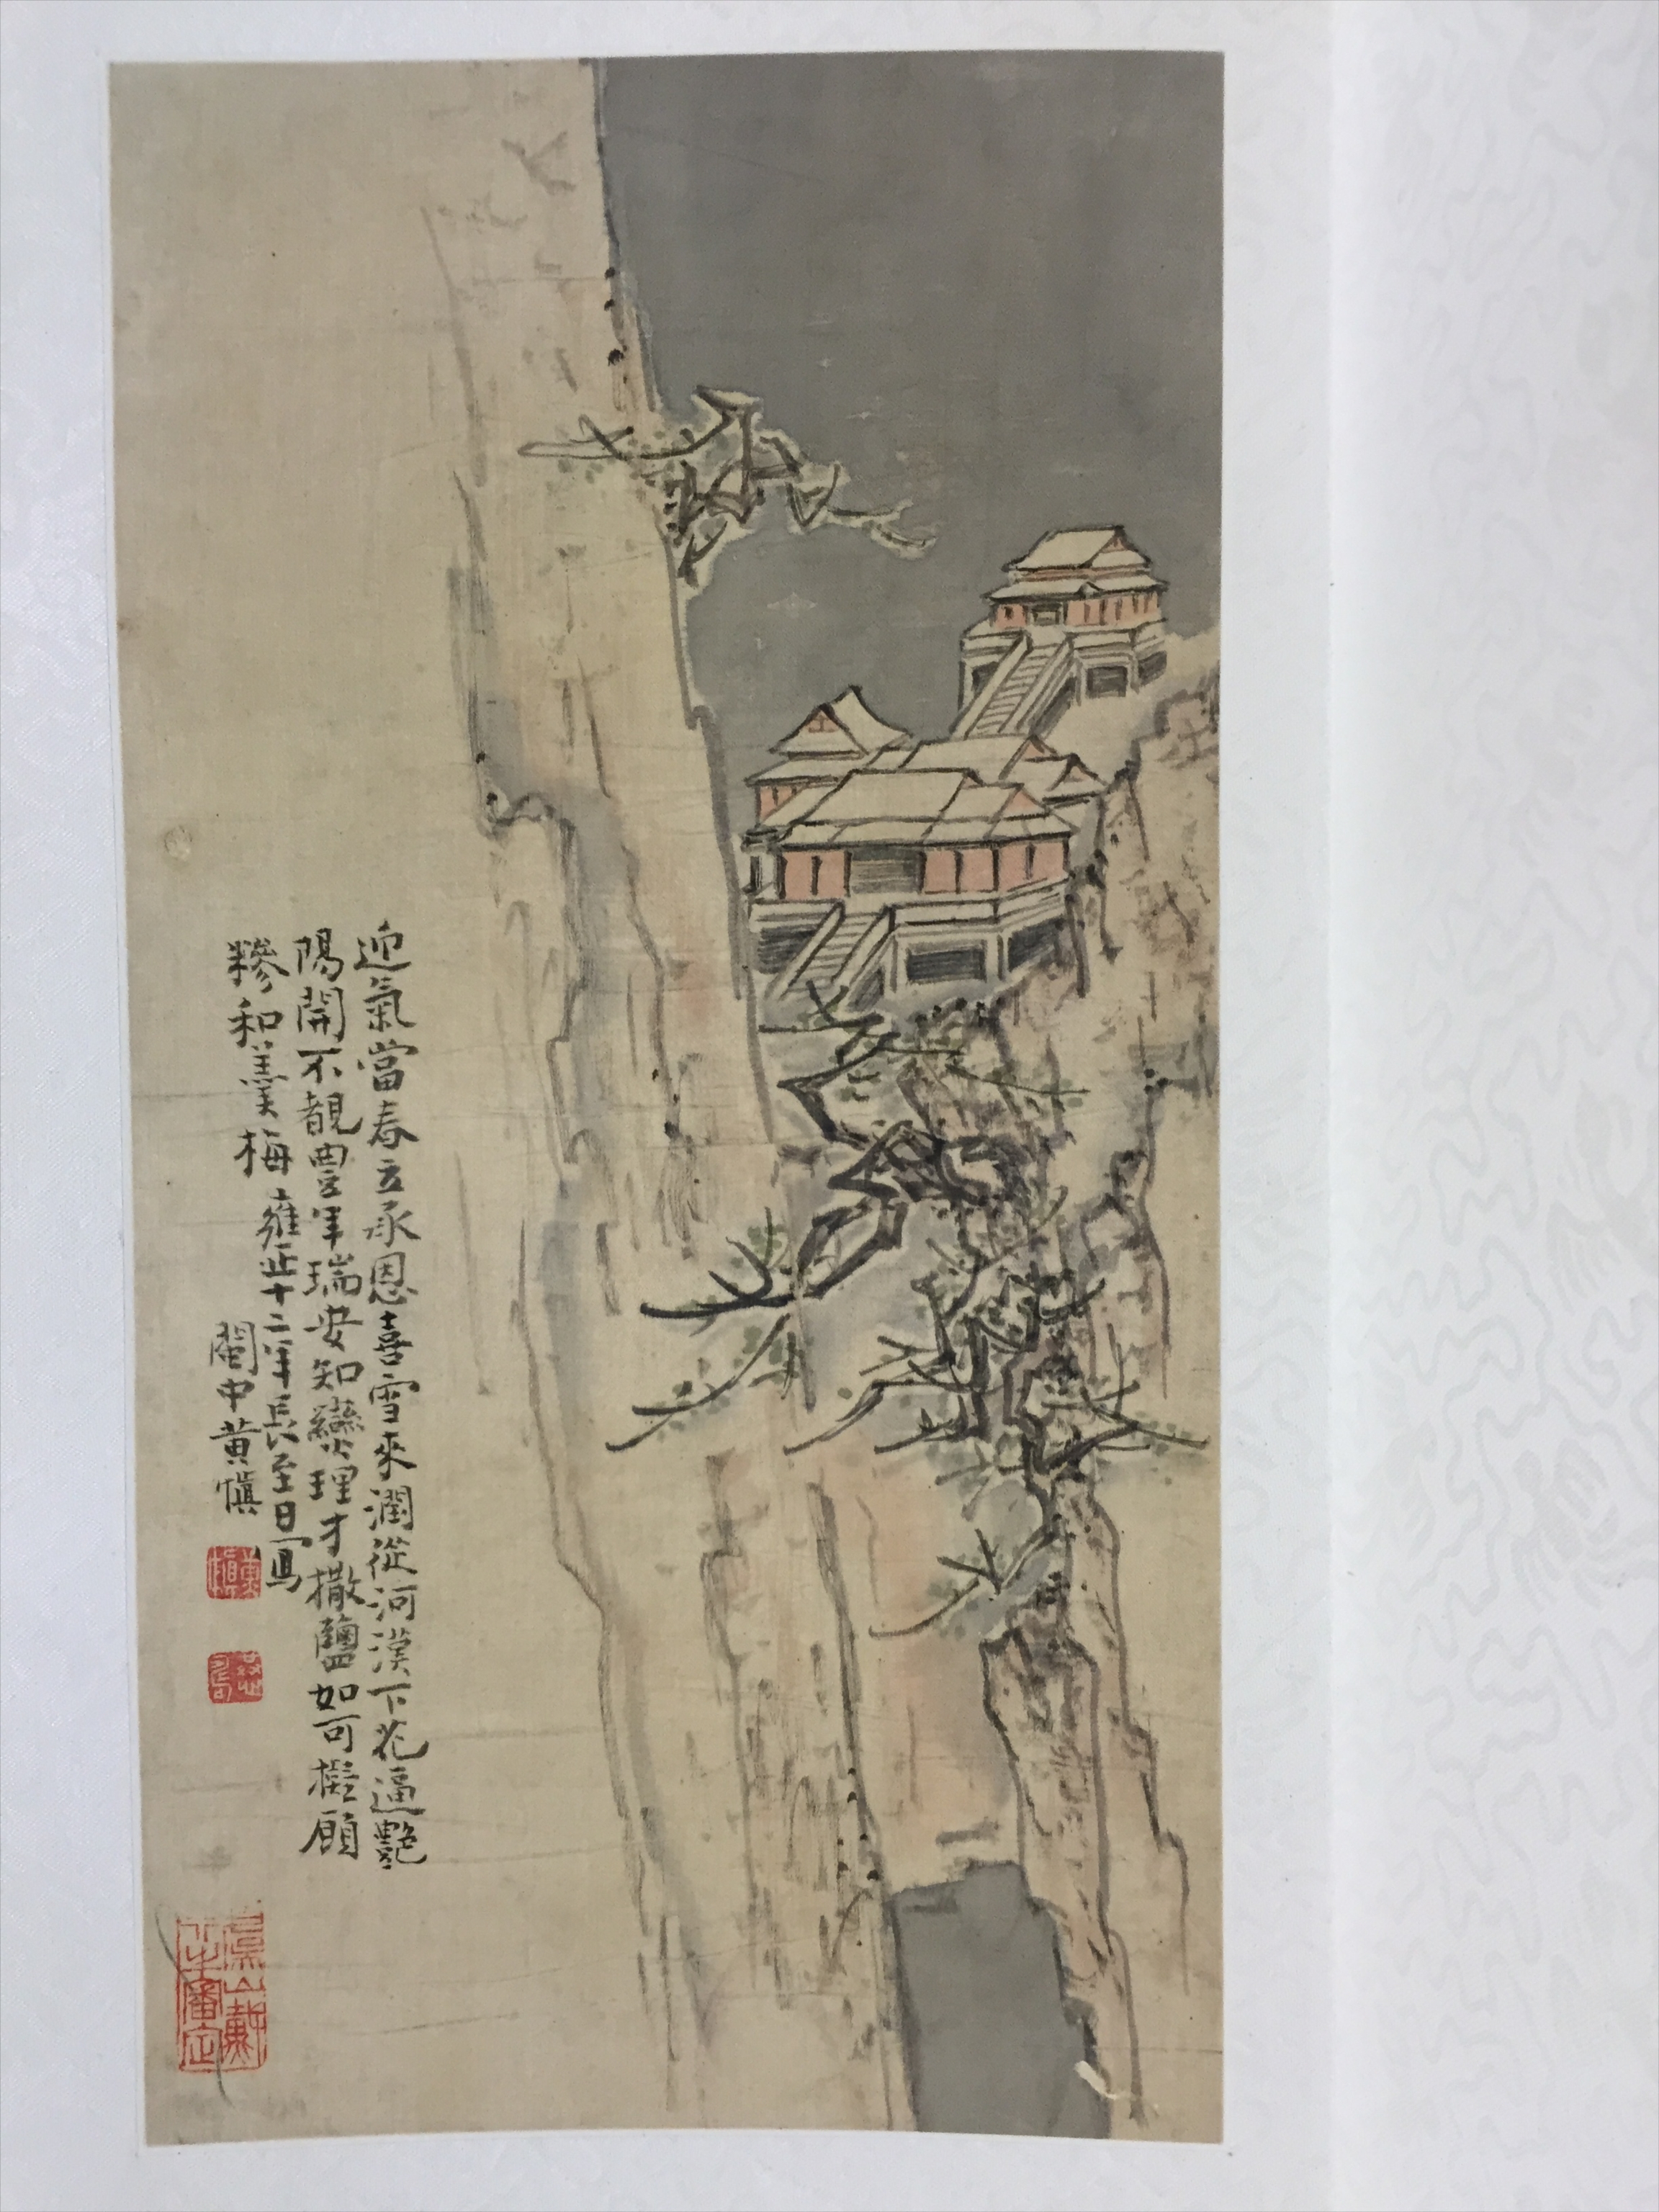 迎氣當春立承恩喜雪來潤從河漢下花逼艷
陽開不覩豐年瑞安知燮理才撒鹽如可擬願
糝和羹梅 雍正十二年長至日寫
閩中黃慎
黃慎